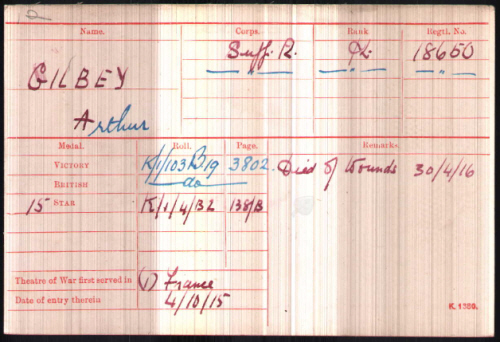 Name. Corps. Rank Regtl. No.
GILBEY Suff. R. Pte. 18650
" " "
Arthur
Medal. Roll. Page. Remarks.
VICTORY K/1/103B19 3802. Died of Wounds 30/4/16
BRITISH do
15 STAR K/1/4/B2 138/B
Theatre of War first served in (1) France
Date of entry therein 4/10/15
K. 1380.